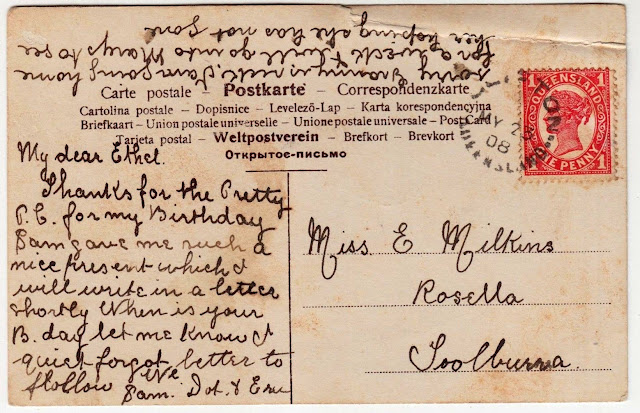 sorry Granny is sick, I am going home
for a week & will go into Mary's to see
her hoping she has not gone
Carte postale – Postkarte – Correspondenzkarte
Cartolina postale – Dopisnice – Levelező-Lap – Karta korespondencyjna
Briefkaart – Union postale universelle – Unione postale universale – Post Card
Tarjeta postal – Weltpostverein – Brefkort – Brevkort
Открытое-письмо
QUEENSLAND
1 1
ONE PENNY
TON
MY 2
08
QUEENSLAND
My dear Ethel.
Thanks for the Pretty
P.C. for my Birthday
Pam gave me such a
nice present which I
will write in a letter
shortly When is your
B. day let me know I
quiet forgot letter to
flollow
Pam. Dot. &
Miss E Milkins
Rosella
Toolburra.